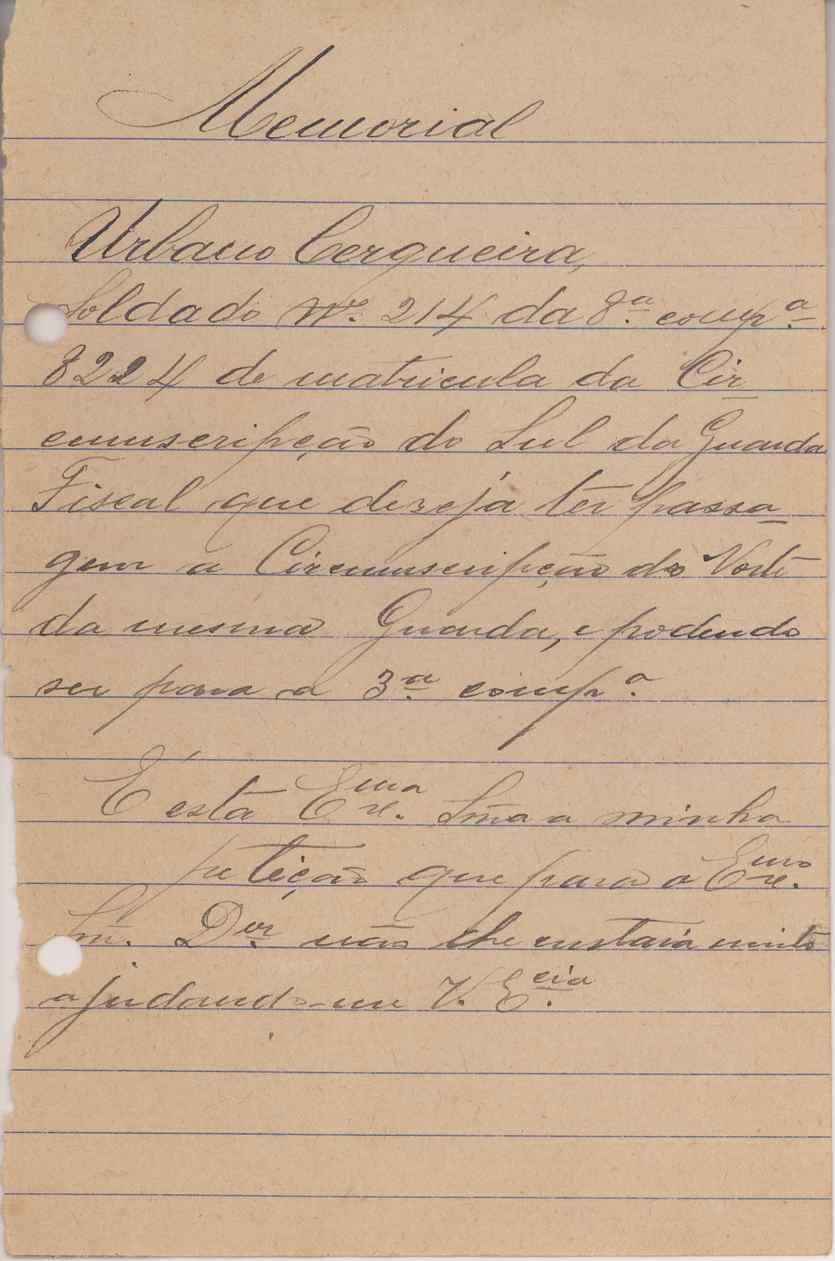 Memorial
Urbano Cerqueira,
Soldado Nº. 214 da 8.ª comp.ª
8224 de matricula da Cir_
cumscripção do Sul da Guarda
Fiscal que dezeja ter passa_
gem a Circumscripção do Norte
da mesma Guarda, e podendo
ser para a 3.ª comp.ª
É esta Ex.ma Snra a minha
petição que para o Ex.mo
Snr. D.or não lhe custará muito
ajudando-me V. Ex.cia